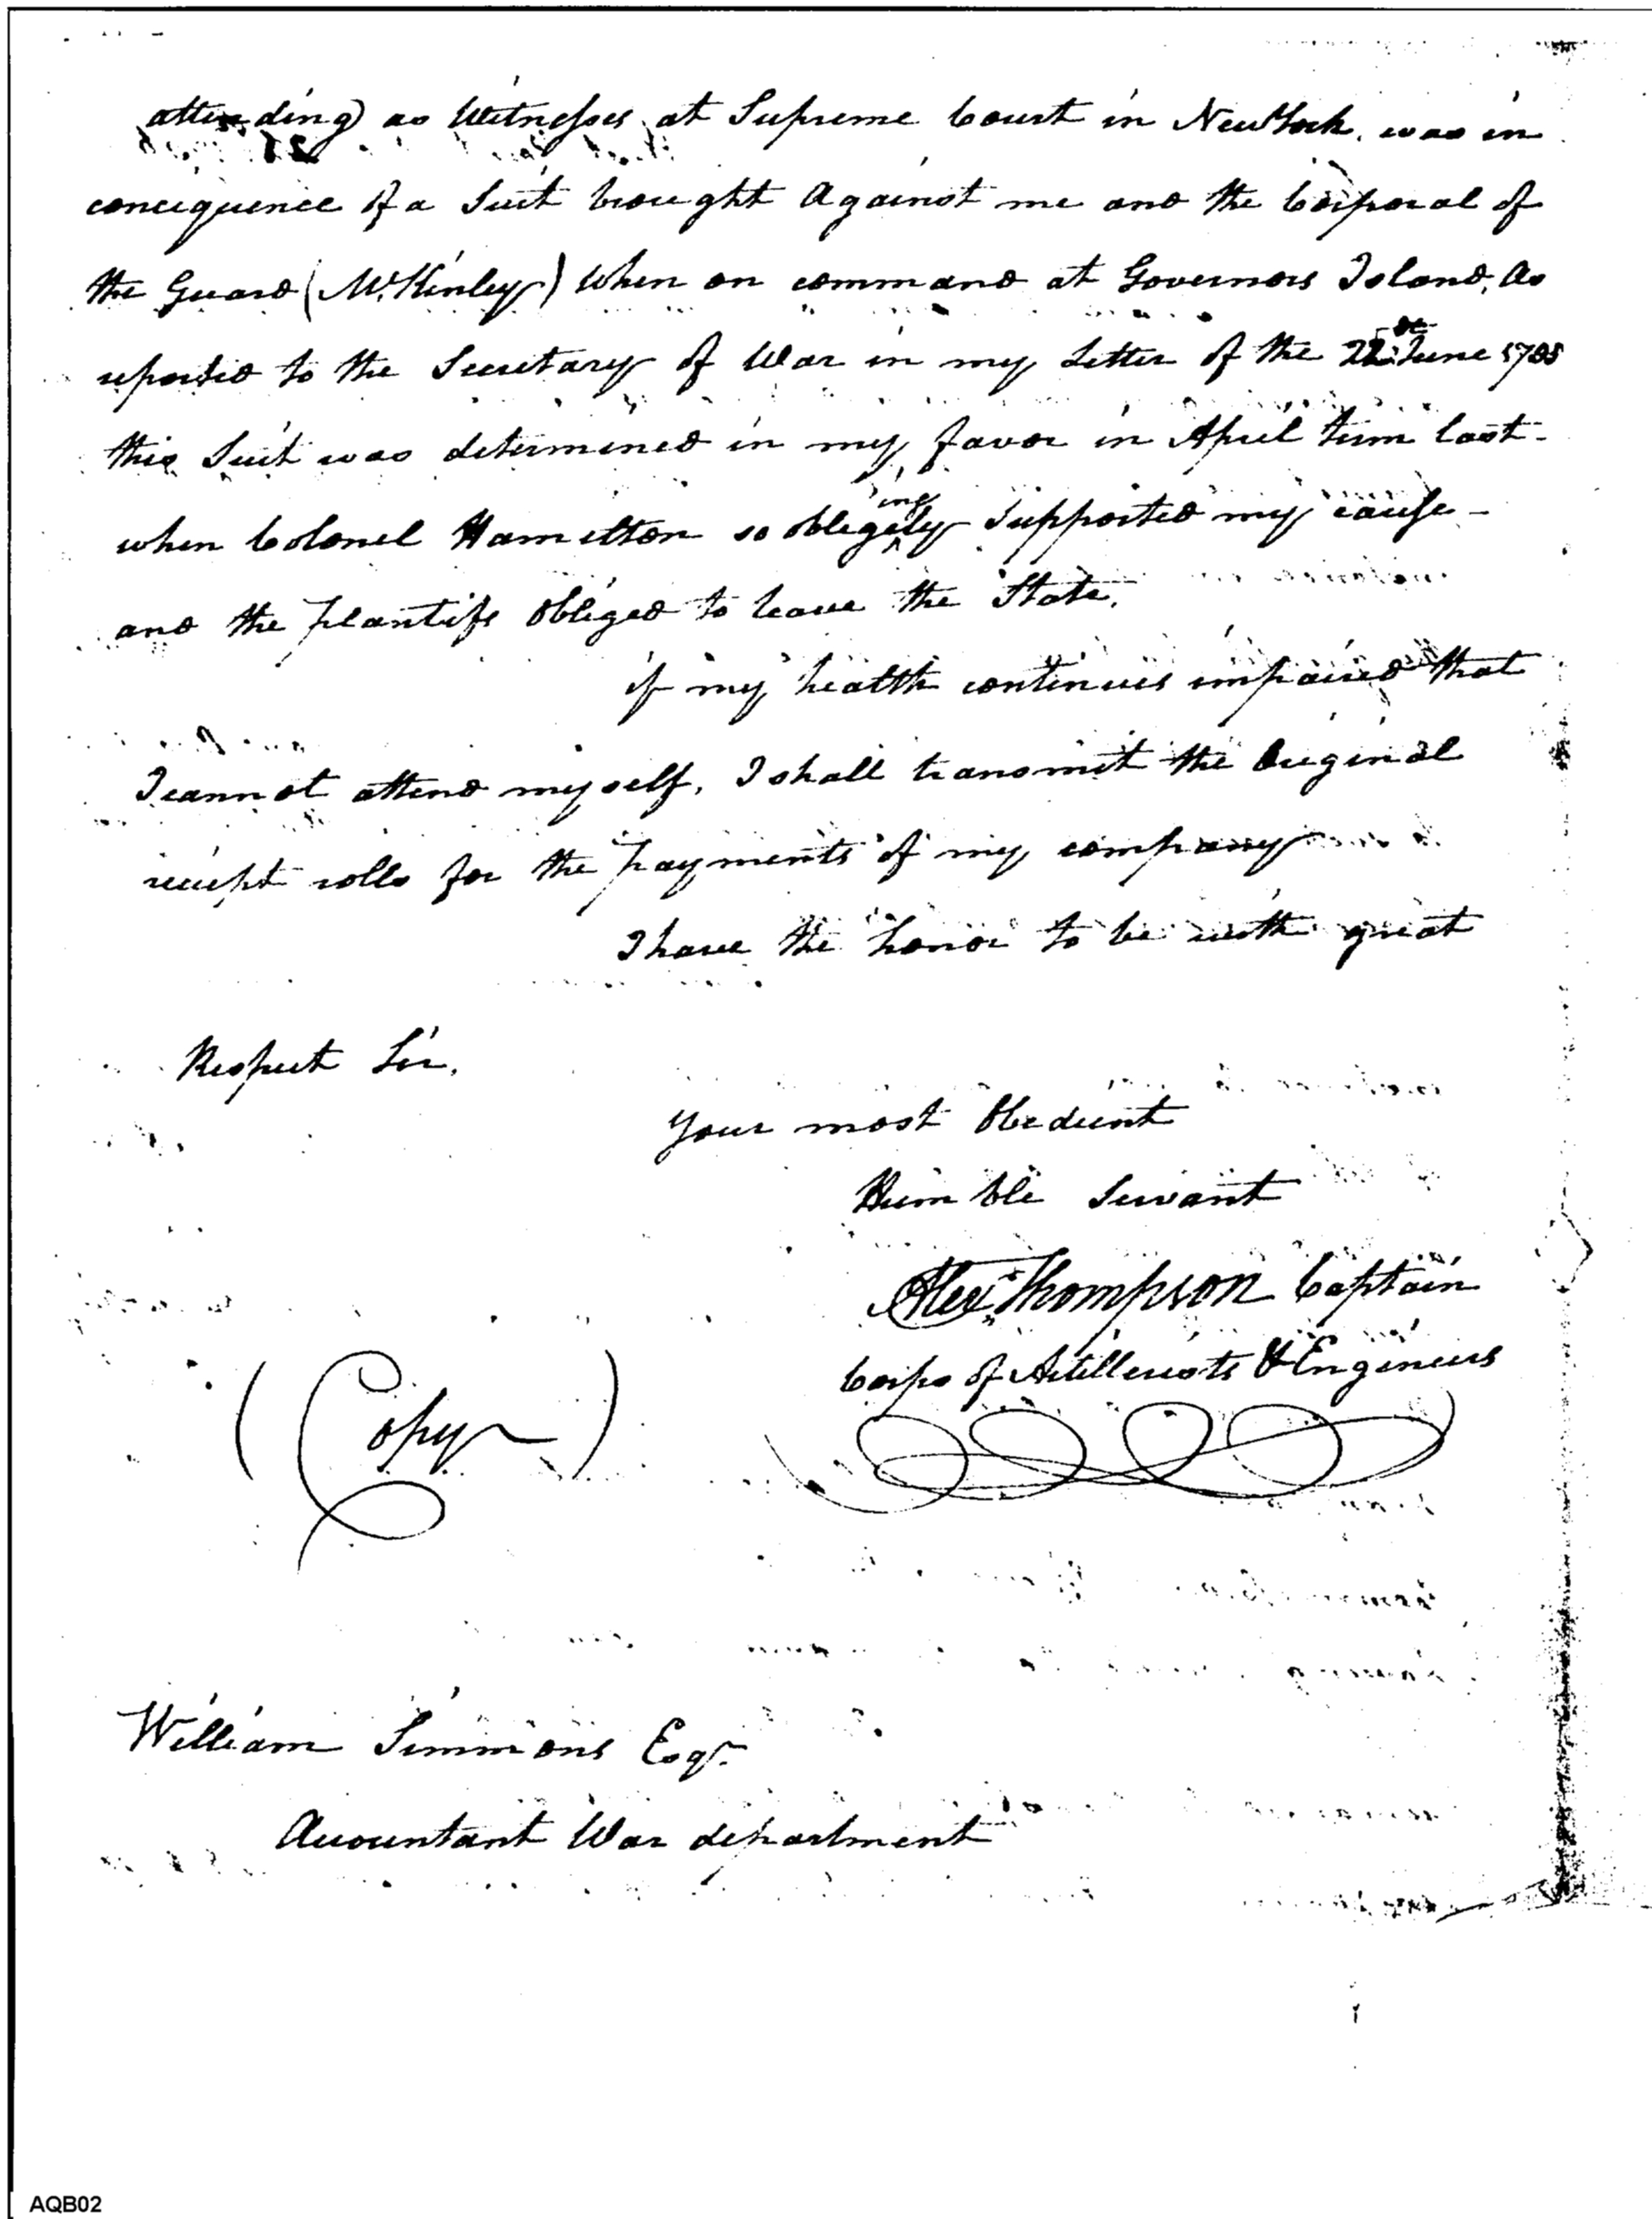 attending) as Witnesses at Supreme Court in New York. was in
concequence of a Suit brought Against me and the Corporal of
the Guard (McKinley) when on command at Governors Island, As
reported to the Secretary of War in my Letter of the June
this Suit was determined in my favor in April term last -
when Colonel Hamilton so obligeingly Supported my cause -
and the plantifs Obliged to leave the State,
if my health continues impaired that
I cannot attend myself, I shall transmit the Original
receipt rolls for the payments of my company
I have the honor to be with great
Respect Sir,
Your most Obedient
Humble Servant
Alexr Thompson Captain
Corps of Artillerists & Engineers
(Copy)
William Simmons Esqr.
Accountant War department
AQB02